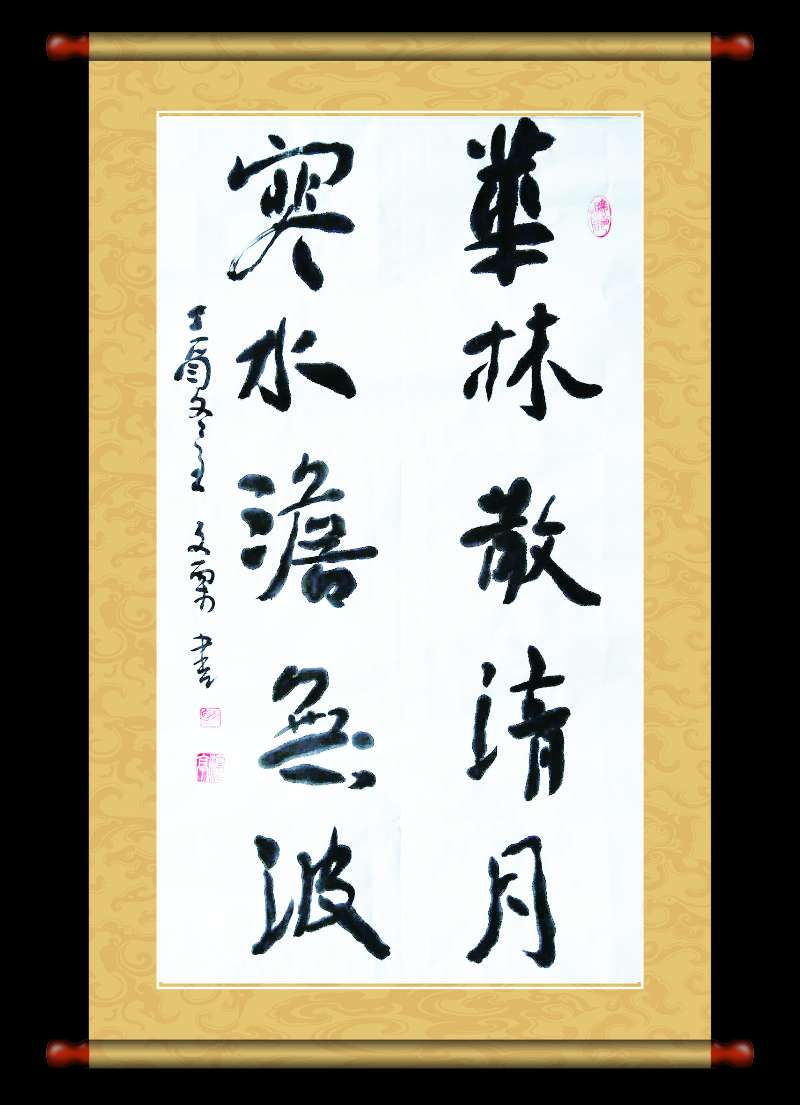 華林散清月
寒水澹無波
丁酉冬至 文東書